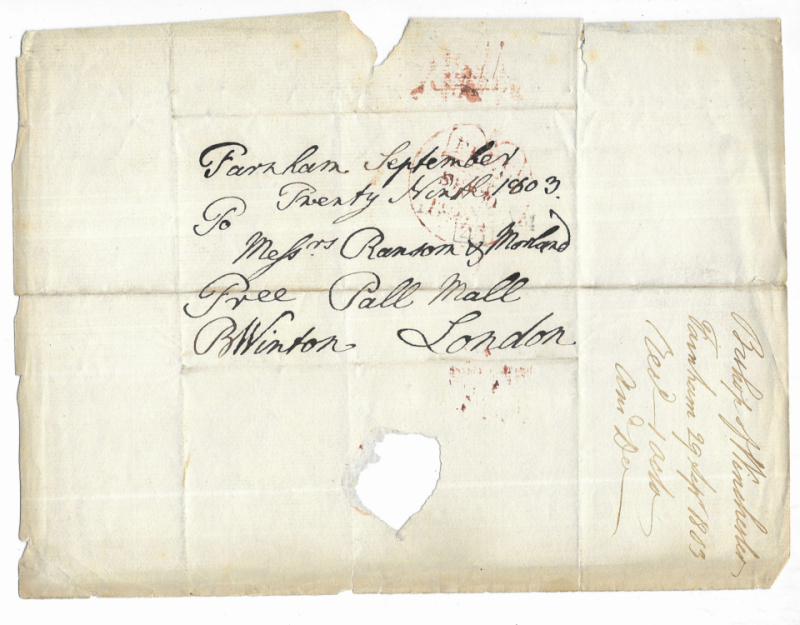 Farnham September
Twenty Ninth 1803.
To
Messrs. Ransom & Morland
Free Pall Mall
B Winton London
Bishop of Winchester
Farnham 29 Sept 1803
Recd 1 Octo
Ansd Do